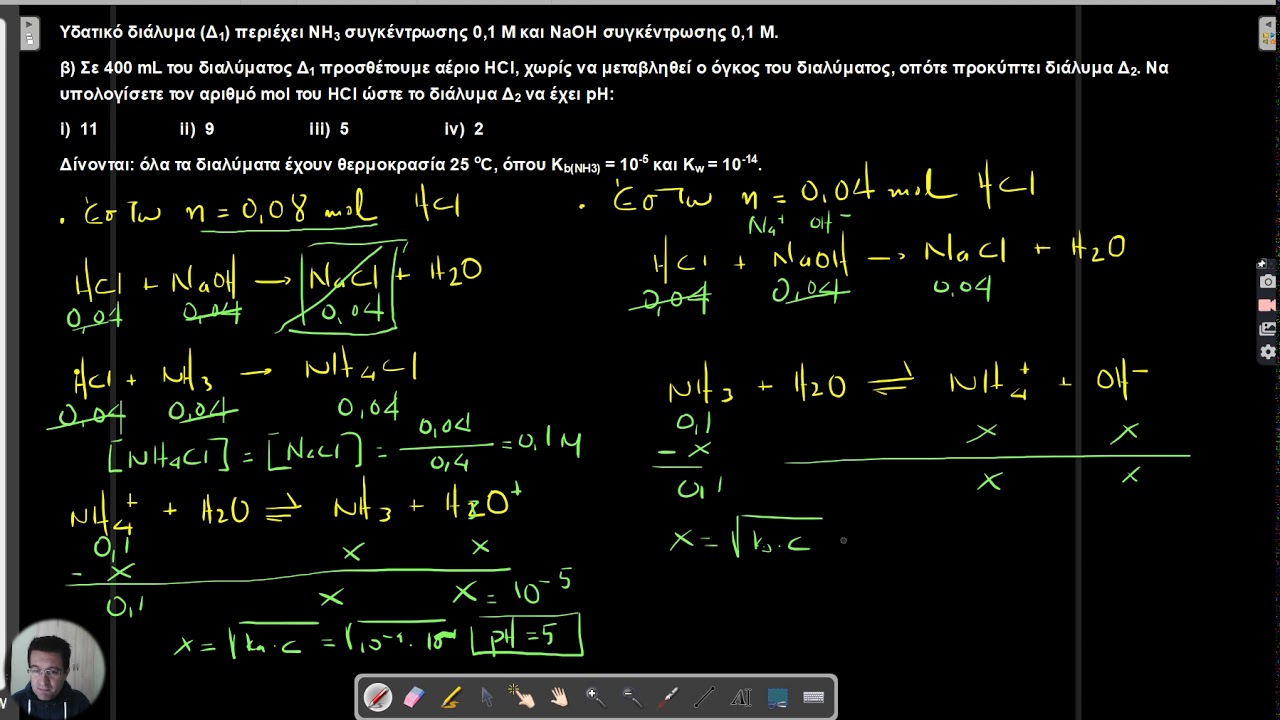 Υδατικό διάλυμα (Δ₁) περιέχει NH₃ συγκέντρωσης 0,1 M και NaOH συγκέντρωσης 0,1 M.
β) Σε 400 mL του διαλύματος Δ₁ προσθέτουμε αέριο HCl, χωρίς να μεταβληθεί ο όγκος του διαλύματος, οπότε προκύπτει διάλυμα Δ₂. Να
υπολογίσετε τον αριθμό mol του HCl ώστε το διάλυμα Δ₂ να έχει pH:
i) 11 ii) 9 iii) 5 iv) 2
Δίνονται: όλα τα διαλύματα έχουν θερμοκρασία 25 ⁰C, όπου K_b(NH3) = 10⁻⁵ και K_w = 10⁻¹⁴.
. Έστω n = 0,08 mol HCl
HCl + NaOH → NaCl + H₂O
0,04 0,04 0,04
HCl + NH₃ → NH₄Cl
0,04 0,04 0,04
[NH₄Cl] = [NaCl] = 0,04 / 0,4 = 0,1 M
NH₄⁺ + H₂O ⇌ NH₃ + H₃O⁺
0,1 x x
- x
0,1 x x = 10⁻⁵
x = √ka·c = √10⁻⁹·10⁻¹ pH = 5
. Έστω n = 0,04 mol HCl
Na⁺ OH⁻
HCl + NaOH → NaCl + H₂O
0,04 0,04 0,04
NH₃ + H₂O ⇌ NH₄⁺ + OH⁻
0,1
- x x x
0,1 x x
x = √kb·c